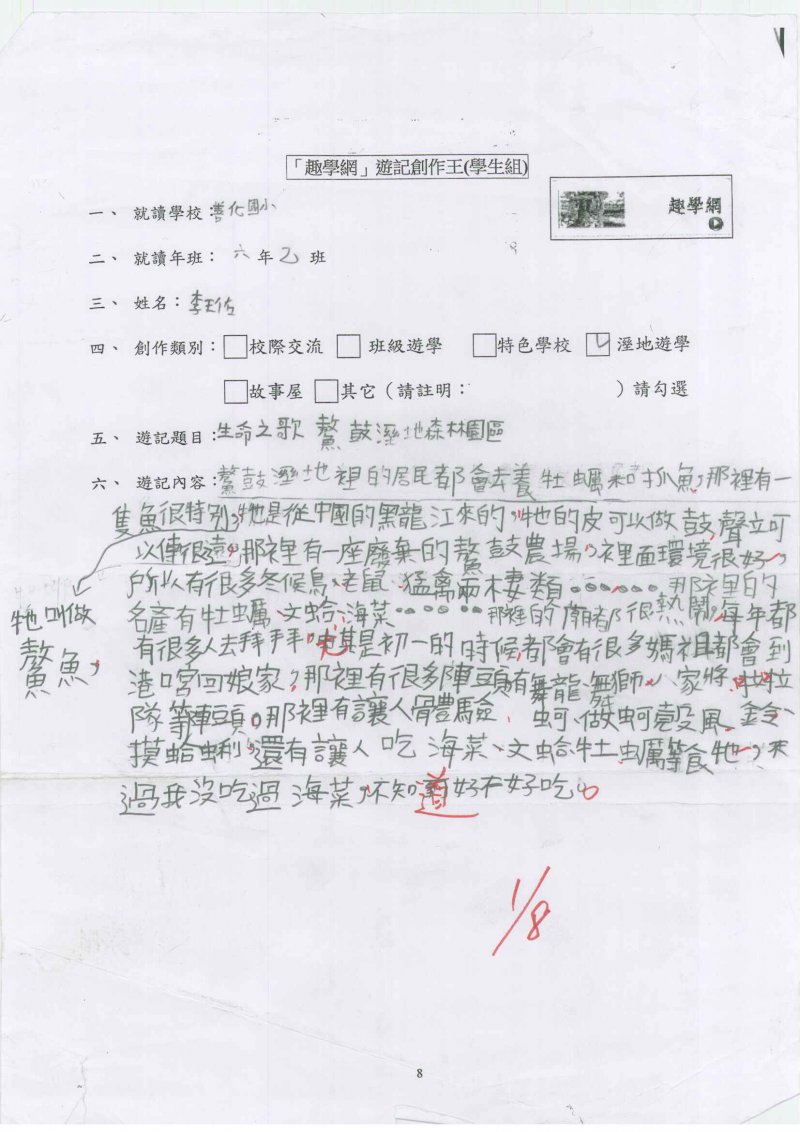 「趣學網」遊記創作王(學生組)
趣學網
一、 就讀學校：善化國小
二、 就讀年班： 六 年 乙 班
三、 姓名：李天佑
四、 創作類別：□校際交流 □ 班級遊學 □特色學校 ☑ 溼地遊學
□故事屋 □其它（請註明： ）請勾選
五、 遊記題目：生命之歌 鰲鼓溼地森林園區
六、 遊記內容：鰲鼓溼地裡的居民都會去養牡蠣和抓魚，那裡有一
隻魚很特別，牠是從中國的黑龍江來的，牠的皮可以做鼓，聲立可
以傳很遠，那裡有一座廢棄的鰲鼓農場，裡面環境很好，
所以有很多冬候鳥、老鼠、猛禽兩棲類………那裡的
牠叫做鰲魚，
名產有牡蠣、文蛤、海菜………那裡的廟都很熱鬧，每年都
有很多人去拜拜，尤其是初一的時候，都會有很多媽祖都會到
港口宮回娘家，那裡有很多陣頭，有舞龍、舞獅、八家將、拉拉
隊等陣頭。那裡有讓人體驗、蚵、做蚵殼風鈴、
摸蛤蜊，還有讓人吃海菜、文蛤、牡蠣等食牠，不
過我沒吃過海菜，不知道好不好吃。
1/8
8